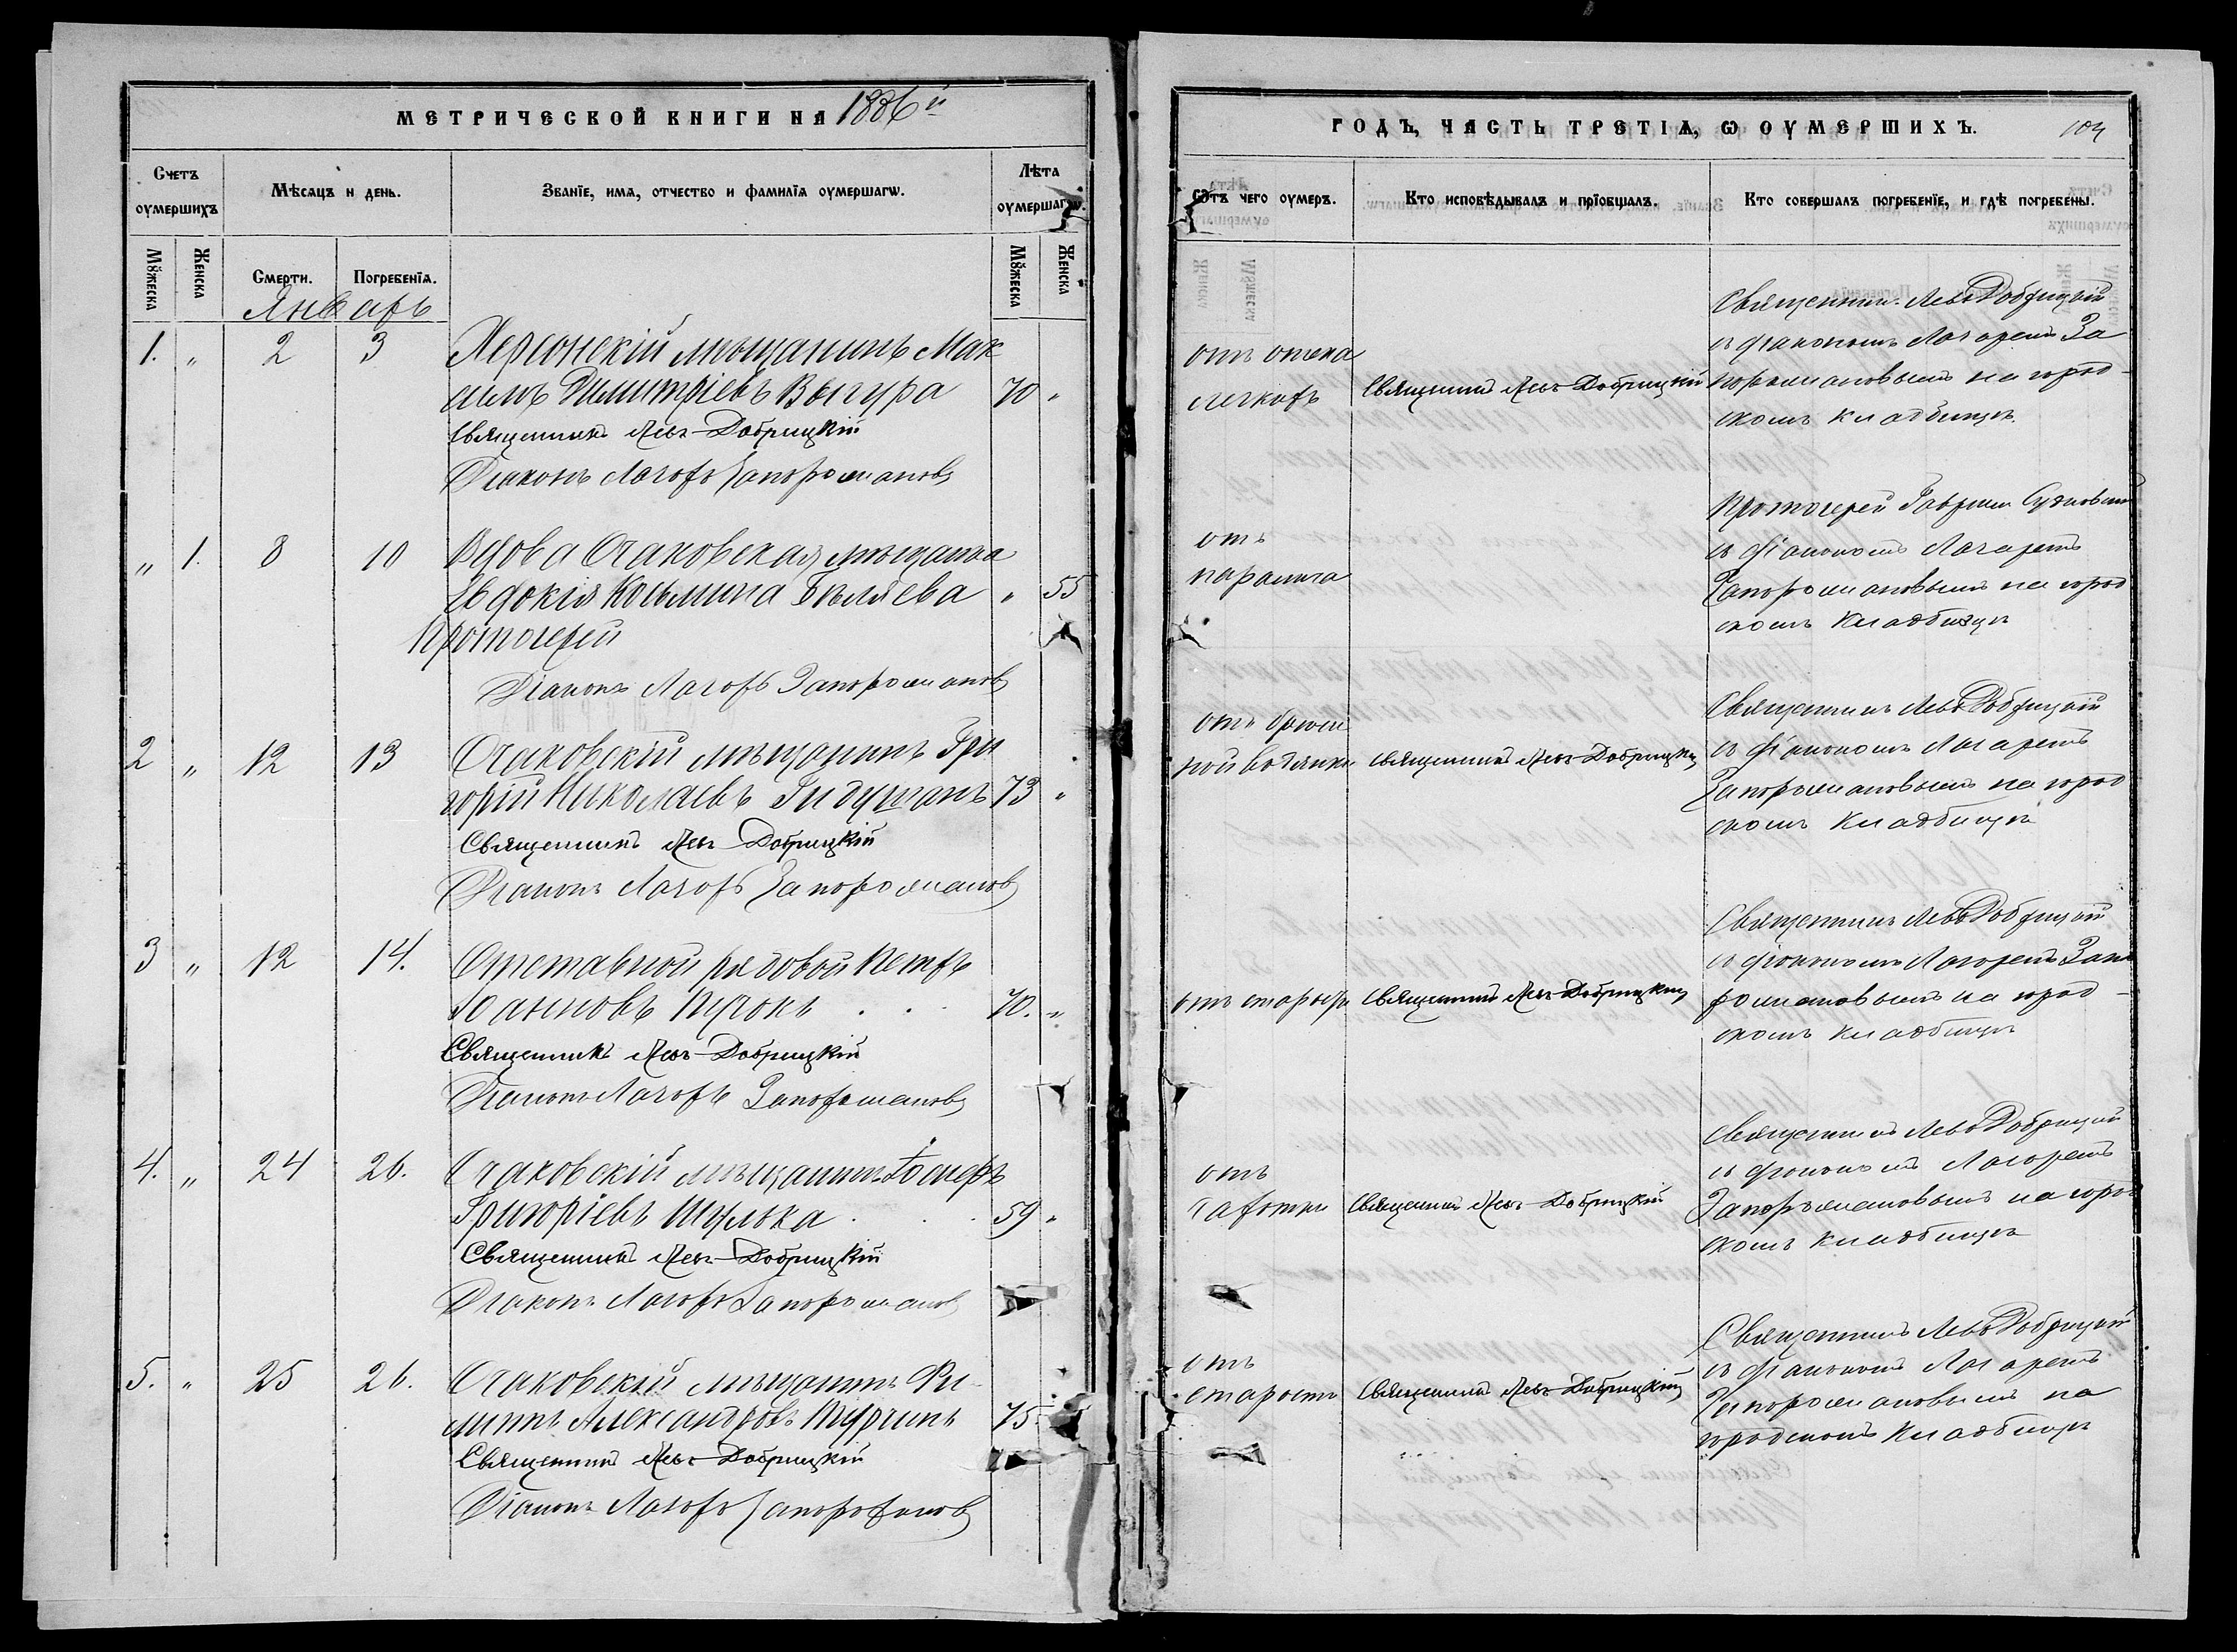 МЕТРИЧЕСКОЙ КНИГИ НА 1886й
Счетъ оумершихъ
Мѣсяцъ и день.
Званїе, имя, отчество и фамилїя оумершагѡ.
Лѣта оумершагѡ.
Мꙋжеска
Женска
Смерти.
Погребенїя.
Мꙋжеска
Женска
Январь
1. „ 2 3 Херсонскій мѣщанинъ Мак
симъ Димитріевъ Выгура 70 „
Священникъ Левъ Добрицкій
Діаконъ Лазарь Запорожановъ
„ 1. 8 10 Вдова Очаковская мѣщанка
Евдокія Косьмина Бѣляева „ 55
Протоіерей
Діаконъ Лазарь Запорожановъ
2 „ 12 13 Очаковскій мѣщанинъ Гри
горій Николаевъ Гидушанъ 73 „
Священникъ Левъ Добрицкій
Діаконъ Лазарь Запорожановъ
3 „ 12 14. Отставной рядовой Петръ
Іоанновъ 70. „
Священникъ Левъ Добрицкій
Діаконъ Лазарь Запорожановъ
4. „ 24 26. Очаковскій мѣщанинъ Іосифъ
Григоріевъ Шулька 59 „
Священникъ Левъ Добрицкій
Діаконъ Лазарь Запорожановъ
5. „ 25 26. Очаковскій мѣщанинъ Фи
липпъ Александровъ Турчинъ 75
Священникъ Левъ Добрицкій
Діаконъ Лазарь Запорожановъ
ГОДЪ, ЧАСТЬ ТРЕТІѦ, Ѡ ОУМЕРШИХЪ. 104
Ѿтъ чего оумеръ.
Кто исповѣдывалъ и прїобщалъ.
Кто совершалъ погребенїе, и гдѣ погребены.
отъ отека
легкихъ
Священникъ Левъ Добрицкій
Священник. Левъ Добрицкій
съ діакономъ Лазаремъ За
порожановымъ на город
скомъ кладбищѣ.
отъ
паралича
Протоіерей Гавріилъ
съ діакономъ Лазаремъ
Запорожановымъ на город
скомъ кладбищѣ
отъ брюш
ной водянки
Священникъ Левъ Добрицкій
Священникъ Левъ Добрицкій
съ діакономъ Лазаремъ
Запорожановымъ на город
скомъ кладбищѣ
отъ старости
Священникъ Левъ Добрицкій
Священникъ Левъ Добрицкій
съ діакономъ Лазаремъ Запо
рожановымъ на город-
скомъ кладбищѣ
отъ
чахотки
Священникъ Левъ Добрицкій
Священникъ Левъ Добрицкій
съ діакономъ Лазаремъ
Запорожановымъ на город
скомъ кладбищѣ
отъ
старости
Священникъ Левъ Добрицкій
Священникъ Левъ Добрицкій
съ діакономъ Лазаремъ
Запорожановымъ на
городскомъ кладбищѣ